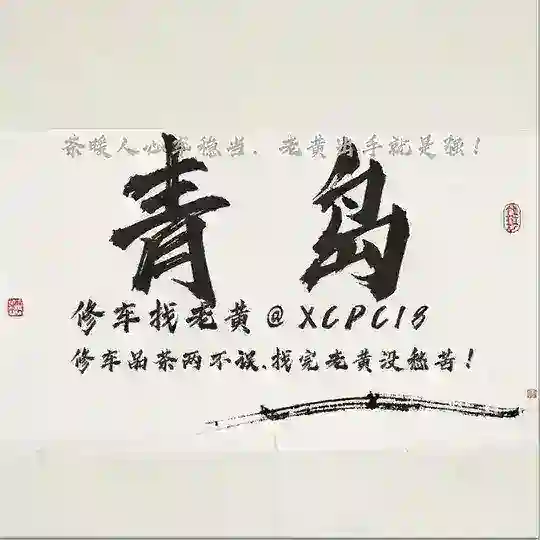 茶暖人心车稳当，老黄出手就是强！
青岛
修车找老黄@XCPC18
修车品茶两不误,找完老黄没愁苦！